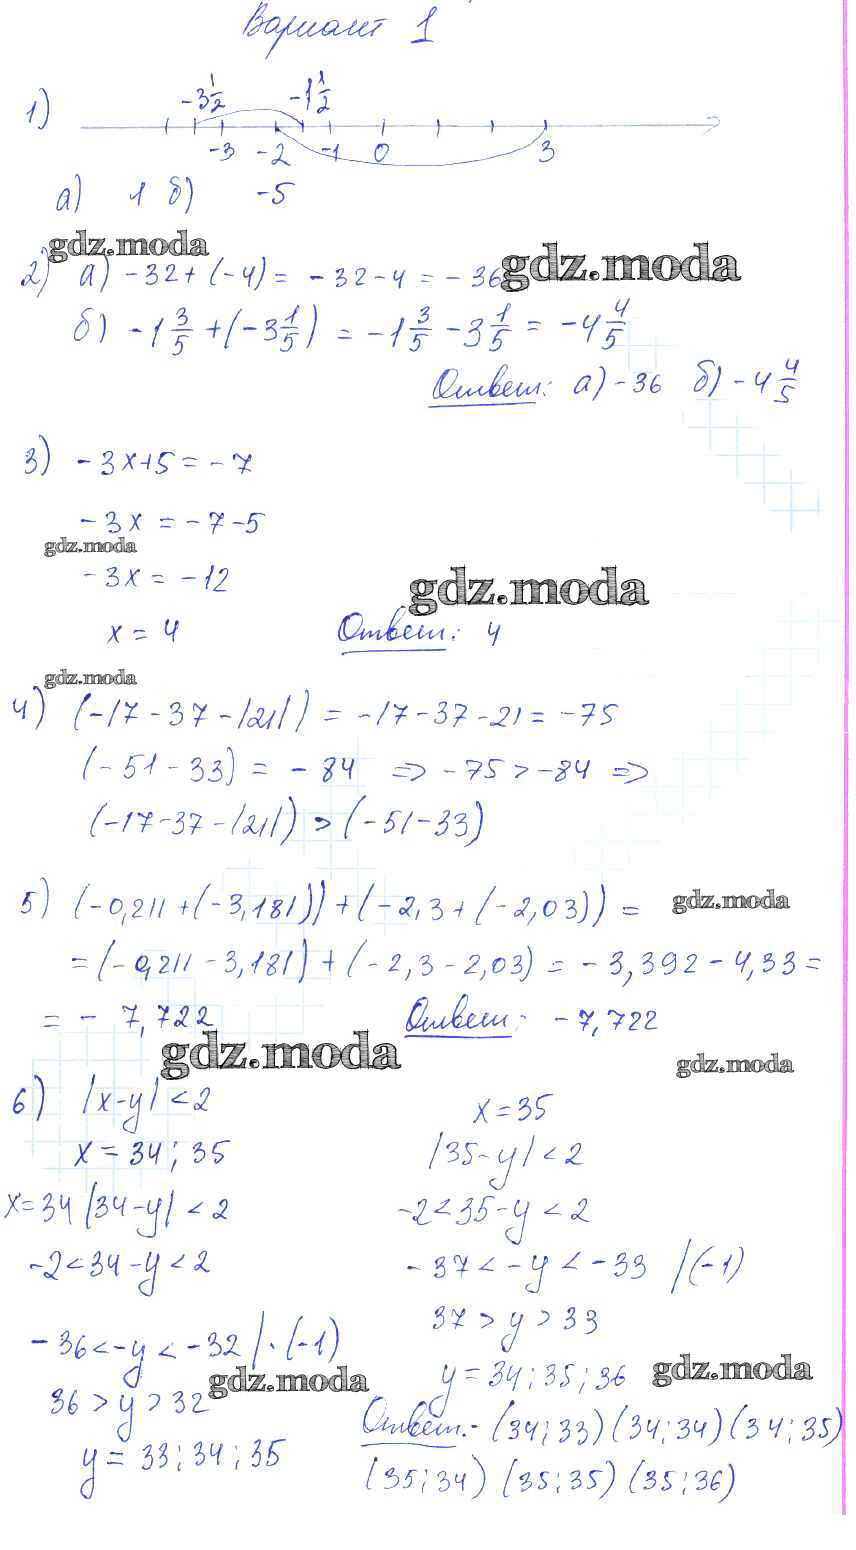 Вариант 1
1) -3 1/2 -1 1/2
-3 -2 -1 0 3
а) 1 б) -5
gdz.moda
gdz.moda
2) а) -32+(-4) = -32-4 = -36
б) -1 3/5 +(-3 1/5) = -1 3/5 -3 1/5 = -4 4/5
Ответ: а) -36 б) -4 4/5
3) -3x+5 = -7
-3x = -7-5
gdz.moda
-3x = -12
gdz.moda
x = 4 Ответ: 4
gdz.moda
4) (-17-37-|21|) = -17-37-21 = -75
(-51-33) = -84 => -75 > -84 =>
(-17-37-|21|) > (-51-33)
5) (-0,211+(-3,181))+(-2,3+(-2,03)) =
gdz.moda
=(-0,211-3,181)+(-2,3-2,03) = -3,392-4,33 =
= -7,722 Ответ: -7,722
gdz.moda
gdz.moda
6) |x-y| < 2
x = 34; 35
x=34 |34-y| < 2
-2<34-y<2
-36<-y<-32 |·(-1)
gdz.moda
36 > y > 32
y = 33; 34; 35
x = 35
|35-y| < 2
-2<35-y<2
-37<-y<-33 |(-1)
37 > y > 33
gdz.moda
y = 34; 35; 36
Ответ:- (34;33) (34;34) (34;35)
(35;34) (35;35) (35;36)